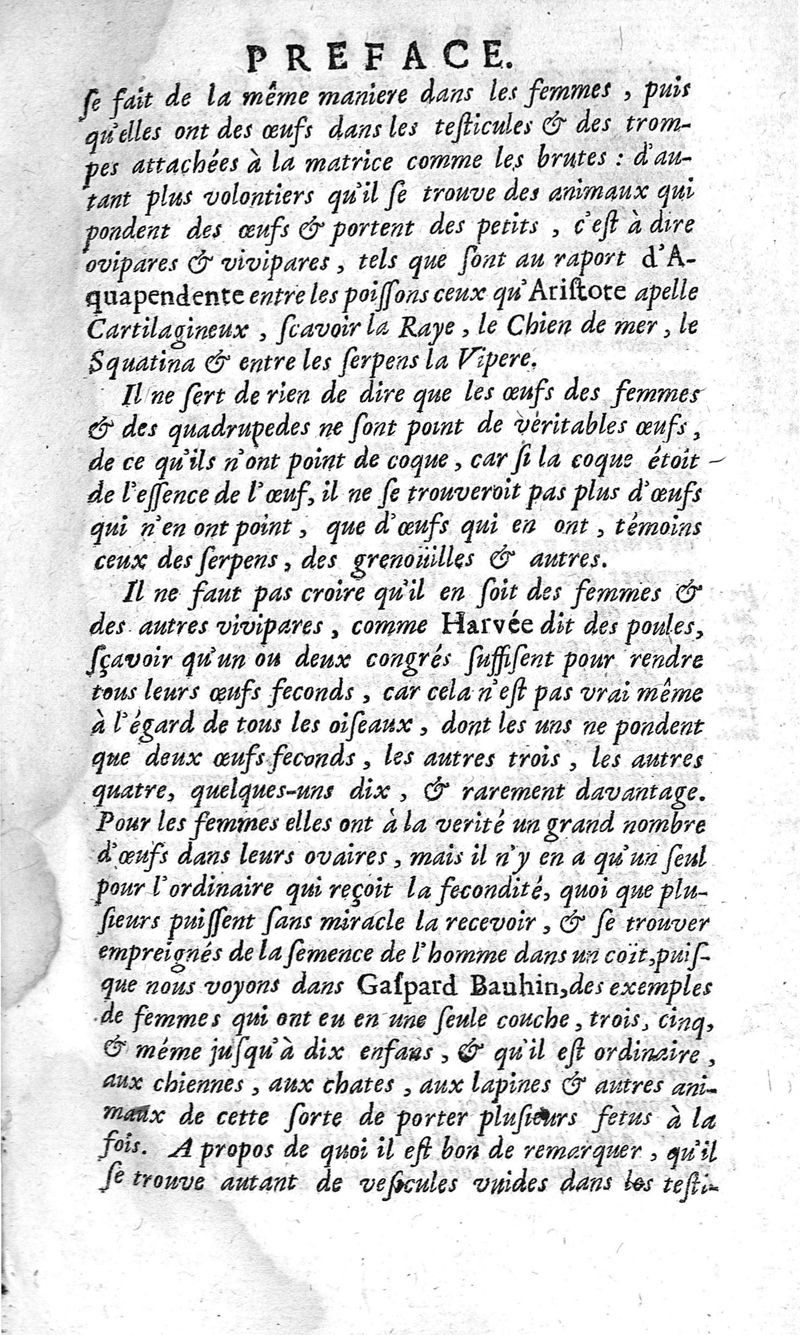 PREFACE.
ſe fait de la même maniere dans les femmes, puis
qu'elles ont des œufs dans les teſticules & des trom-
pes attachées à la matrice comme les brutes : d'au-
tant plus volontiers qu'il ſe trouve des animaux qui
pondent des œufs & portent des petits, c'eſt à dire
ovipares & vivipares, tels que ſont au raport d'A-
quapendente entre les poiſſons ceux qu'Ariſtote apelle
Cartilagineux, ſcavoir la Raye, le Chien de mer, le
Squatina & entre les ſerpens la Vipere.
Il ne ſert de rien de dire que les œufs des femmes
& des quadrupedes ne ſont point de véritables œufs,
de ce qu'ils n'ont point de coque, car ſi la coque étoit
de l'eſſence de l'œuf, il ne ſe trouveroit pas plus d'œufs
qui n'en ont point, que d'œufs qui en ont, témoins
ceux des ſerpens, des grenoüilles & autres.
Il ne faut pas croire qu'il en ſoit des femmes &
des autres vivipares, comme Harvée dit des poules,
ſçavoir qu'un ou deux congrés ſuffiſent pour rendre
tous leurs œufs feconds, car cela n'eſt pas vrai même
à l'égard de tous les oiſeaux, dont les uns ne pondent
que deux œufs feconds, les autres trois, les autres
quatre, quelques-uns dix, & rarement davantage.
Pour les femmes elles ont à la verité un grand nombre
d'œufs dans leurs ovaires, mais il n'y en a qu'un ſeul
pour l'ordinaire qui reçoit la fecondité, quoi que plu-
ſieurs puiſſent ſans miracle la recevoir, & ſe trouver
empreignés de la ſemence de l'homme dans un coït, puiſ-
que nous voyons dans Gaſpard Bauhin, des exemples
de femmes qui ont eu en une ſeule couche, trois, cinq,
& même juſqu'à dix enfans, & qu'il eſt ordinaire,
aux chiennes, aux chates, aux lapines & autres ani-
maux de cette ſorte de porter pluſieurs fetus à la
fois. A propos de quoi il eſt bon de remarquer, qu'il
ſe trouve autant de veſicules vuides dans les teſti-